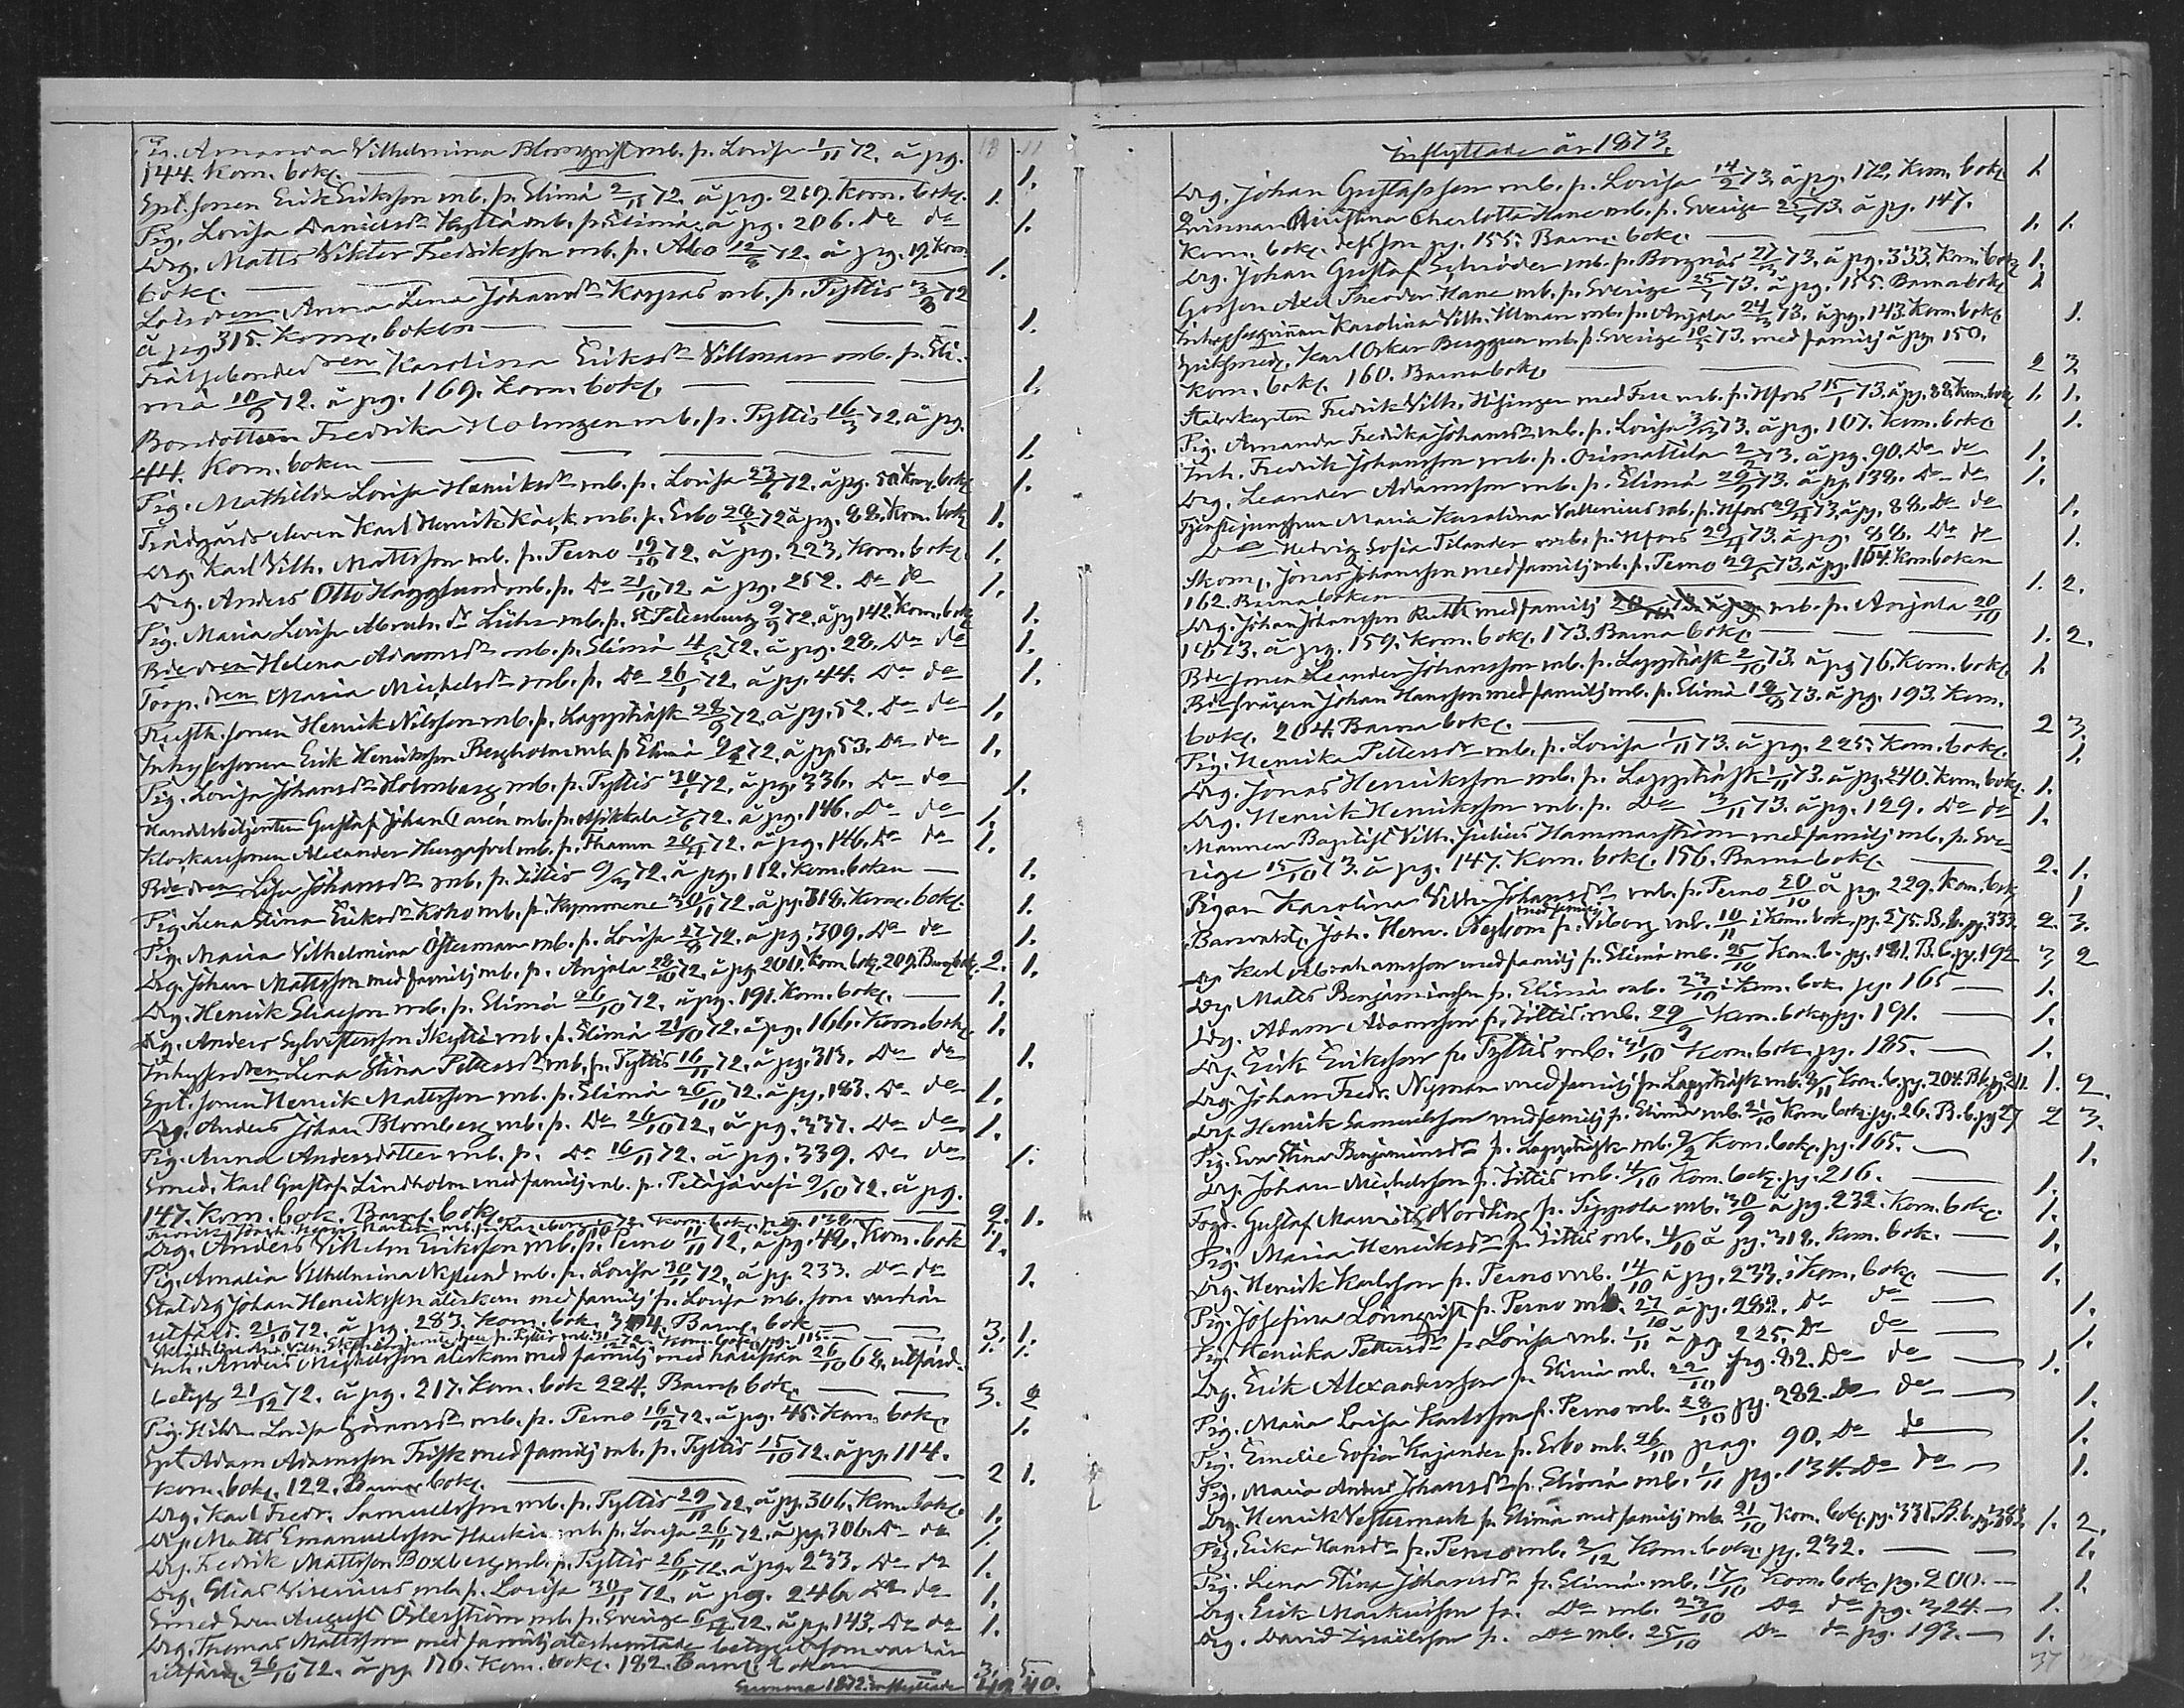 Pig. Amanda Vilhelmina Blomqvist mb. fr. Lovisa 1/11 72. å pg. 18 11
144. Kom. boke. 1.
Spt. sonen Erik Eriksson mb. fr. Elimä 2/11 72. å pg. 269. Kom. boke. 1.
Pig. Lovisa Danielsdr Hyttiä mb. fr. Elimä å pg. 206. Do do 1.
Drg. Matts Viktor Fredriksson mb. fr. Åbo 12/8 72. å pg. 19. Kom.
boke. 1.
Anna Lena Johansdr Korpas mb. fr. Pyttis 3/3 72
å pg 315. Komm. boken 1.
Karolina Eriksdr Villman mb. fr. Eli-
mä 10/9 72. å pg. 169. Kom. boke. 1.
Bondottern Fredrika Holmgen mb. fr. Pyttis 16/3 72. å pg.
44. Kom. boken 1.
Pig. Mathilda Lovisa Henriksdr mb. fr. Lovisa 23/6 72. å pg. 50 Kom. boke 1.
Trädgårds eleven Karl Henrik Kåck mb. fr. Esbo 28/5 72 å pg. 88. Kom. boke 1.
Drg. Karl Vilh. Mattsson mb. fr. Perno 19/10 72. å pg. 223. Kom. boke. 1.
Drg. Anders Otto Hagglund mb. fr. Do 21/10 72. å pg. 252. Do do 1.
Pig. Maria Lovisa Abrah. dr mb. fr. St Petersburg 9/9 72. å pg 142. Kom. boke 1.
Bde dren Helena Adamsdr mb. fr. Elimä 4/5 72. å pg. 28. Do do 1.
Torp. dren Maria Michelsdr mb. fr. Do 26/1 72. å pg. 44. Do do 1.
sonen Henrik Nilsson mb. fr. Lappträsk 28/9 72. å pg. 52. Do do 1.
Inhysessonen Erik Henriksson Bergholm mb. fr. Elimä 72. å pg. 53. Do do 1.
Pig. Lovisa Johansdr Holmberg mb. fr. Pyttis 30/1 72. å pg. 336. Do do 1.
Handelsbetjenten Gustaf Johan mb. fr. 7/6 72. å pg. 146. Do do 1.
Klockaresonen Alexander mb. fr. Fhamn 20/4 72. å pg. 146. Do do 1.
Bde dren Lisa Johansdr mb. fr. Littis 9/3 72. å pg. 112. Kom. boken 1.
Pig. Lena Stina Eriksdr Koho mb. fr. Kymmene 30/11 72. å pg. 318. Kom. boke. 1.
Pig. Maria Vilhelmina Österman mb. fr. Lovisa 27/8 72. å pg. 309. Do do 1.
Drg. Johan Mattsson med familj mb. fr. Anjala 28/10 72. å pg. 200. Kom. bok. 209. Barne bok. 2. 1.
Drg. Henrik Eliasson mb. fr. Elimä 26/10 72. å pg. 191. Kom. boke. 1.
Drg. Anders Sylvestersson Skyttä mb. fr. Elimä 21/10 72. å pg. 166. Kom. boke 1.
Inhysesdren Lena Stina Pettersdr mb. fr. Pyttis 16/11 72. å pg. 313. Do do 1.
Spt. sonen Henrik Mattsson mb. fr. Elimä 26/10 72. å pg. 183. Do do 1.
Drg. Anders Johan Blomberg mb. fr. Do 26/10 72. å pg. 337. Do do 1.
Pig. Anna Andersdotter mb. fr. Do 16/11 72. å pg. 339. Do do 1.
Smed. Karl Gustaf Lindholm med familj mb. fr. Petäjävesi 9/10 72. å pg.
147. Kom. bok. Barne. boke. 2. 1.
Drg. Anders Vilhelm Eriksson mb. fr. Perno 11/11 72. å pg. 49. Kom. bok 1.
Pig. Amalia Vilhelmina Neslund mb. fr. Lovisa 30/11 72. å pg. 233. Do do 1.
Stat drg Johan Henriksson återkom. med familj fr. Lovisa mb. som var här
utfärd. 21/10 72. å pg. 283. Kom. bok. 304. Barne. bok 3. 1.
Inh. Anders Michelsson återkom med familj med härifrån 26/10 68. utfärd.
betyg 21/12 72. å pg. 217. Kom. bok 224. Barne bok. 3. 2
Pig. Hilda Lovisa Göransdr mb. fr. Perno 16/12 72. å pg. 45. Kom. boke. 1.
Spt Adam Adamsson Frisk med familj mb. fr. Pyttis 15/10 72. å pg. 114.
Kom. boke. 122. Barne boke. 2 1.
Drg. Karl Fredr. Samuelsson mb. fr. Pyttis 29/11 72. å pg. 306. Kom. boke. 1.
Drg. Matts Emanuelsson mb. fr. Lovisa 26/11 72. å pg. 306. Do do 1.
Drg. Fredrik Mattsson Boxberg mb. fr. Pyttis 26/11 72. å pg. 233. Do do 1.
Drg. Elias Virenius mb. fr. Lovisa 30/11 72. å pg. 246. Do do 1.
Smed Sven August Österström mb. fr. Sverige 6/4 72. å pg. 143. Do do 1.
Drg. Thomas Mattsson med familj återhemtade betyget som var här
utfärd. 26/10 72. å pg. 170. Kom. boke. 182. Barne. boken 3. 5.
Summa 1872. inflyttade 49. 40.
Inflyttade år 1873.
Drg. Johan Gustafsson mb. fr. Lovisa 14/2 73. å pg. 172. Kom. boke 1
Qvinnan Christina Charlotta Hane mb. fr. Sverige 25/7 73. å pg. 147.
Kom. boke. dess son pg. 155. Barne. boke. 1. 1.
Drg. Johan Gustaf Schröder mb. fr. Borgnäs 27/3 73. å pg. 333. Kom. boke 1.
Gossen Axel Theodor Hane mb. fr. Sverige 25/7 73. å pg. 155. Barnaboke 1
Karolina Vilh. Ulman mb. fr. Anjala 24/3 73. å pg. 143. Kom. boke. 1.
Karl Oskar Berggren mb. fr. Sverige 10/5 73. med familj å pg. 150.
Kom. boke. 160. Barnaboke. 2 3
Stabskapten Fredrik Vilh. Hisinger med Fru mb. fr. Hfors 15/1 73. å pg. 88. Kom. boke 1. 1.
Pig. Amanda Fredrika Johansdr mb. fr. Lovisa 73. å pg. 107. Kom. boke 1.
Inh. Fredrik Johansson mb. fr. Orimattila 2/2 73. å pg. 90. Do do 1.
Drg. Leander Adamsson mb. fr. Elimä 28/9 73. å pg. 138. Do do 1.
Tjenstejungfrun Maria Karolina Vallenius mb. fr. Hfors 29/4 73. å pg. 88. Do do 1.
Do Hedvig Sofia Tilander mb. fr. Hfors 29/4 73. å pg. 88. Do do 1.
Skom. Jonas Johansson med familj mb. fr. Perno 29/5 73. å pg. 154. Kom boken
162. Barnaboken 1. 2.
Drg. Johan Johansson Ruth med familj mb. fr. Anjala 20/10
1873. å pg. 159. Kom. boke. 173. Barna boke. 1. 2.
Bde sonen Leander Johansson mb. fr. Lappträsk 2/10 73. å pg 76. Kom. boke. 1
Bde svågern Johan Hansson med familj mb. fr. Elimä 18/8 73. å pg. 193. Kom.
boke. 204. Barna boke. 2 3.
Pig. Henrika Pettersdr mb. fr. Lovisa 1/11 73. å pg. 225. Kom. boke. 1.
Drg. Jonas Henriksson mb. fr. Lappträsk 1/11 73. å pg. 240. Kom. boke. 1.
Drg. Henrik Henriksson mb. fr. Do 3/11 73. å pg. 129. Do do 1.
Mannen Baptist Vilh. Julius Hammarström med familj mb. fr. Sve-
rige 15/10 73. å pg. 147. Kom. boke. 156. Barna boke. 2. 1.
Pigan Karolina Vilh. Johansdr mb. fr. Perno 20/10 å pg. 229. Kom. bok 1
Joh. Henr. Nybom med familj fr. Viborg mb. 10/11 i Kom. bok. pg. 275. B. b. pg. 333. 2. 3.
Drg Karl Abrahamsson med familj fr. Elimä mb. 25/10 Kom. b. pg. 181. B. b. pg. 192 3 2
Drg. Matts Benjaminsson fr. Elimä mb. 23/10 i Kom. bok. pg. 165 1.
Drg. Adam Adamsson fr. Littis mb. 29/9 Kom. boke pg. 191. 1.
Drg. Erik Eriksson fr. Pyttis mb. 31/10 Kom. bok. pg. 185. 1.
Drg. Johan Fredr. Nyman med familj fr. Lappträsk mb. 3/11 Kom. b. pg. 204. B. b. pg. 211. 1. 2.
Drg. Henrik Samuelsson med familj fr. Elimä mb. 21/10 Kom. boke. pg. 26. B. b. pg 27 2 3.
Pig. Eva Stina Benjaminsdr fr. Lappträsk mb. 9/2 Kom. boke. pg. 165. 1.
Drg. Johan Michelsson fr. Littis mb. 4/10 Kom. boke. pg. 216. 1.
Fogd. Gustaf Mauritz Nordling fr. Sippola mb. 30/9 å pg. 232. Kom. boke. 1.
Pig. Maria Henriksdr fr. Littis mb. 4/10 å pg. 318. Kom. bok. 1.
Drg. Henrik Karlsson fr. Perno mb. 14/10 å pg. 233. i Kom. boke. 1.
Pig. Josefina Lönnqvist fr. Perno mb. 27/10 å pg. 282. Do do 1.
Pig. Henrika Pettersdr fr. Lovisa mb. 1/11 å pg. 225. Do do 1.
Drg. Erik Alexandersson fr. Elimä mb. 22/10 pg. 82. Do do 1.
Pig. Maria Lovisa Karlsson fr. Perno mb. 28/10 pg. 282. Do do 1.
Pig. Emelie Sofia Kajander fr. Esbo mb. 26/10 pag. 90. Do do 1.
Pig. Maria Anders Johansdr fr. Elimä mb. 1/11 pg. 134. Do do 1.
Drg. Henrik Vestermark fr. Elimä med familj mb. 21/10 Kom. boke. pg. 335. B. b. pg. 1. 2.
Pig. Erika Hansdr fr. Perno mb. 2/12 Kom. boke. pg. 232. 1.
Pig. Lena Stina Johansdr fr. Elimä mb. 17/10 Kom. boke. pg. 200. 1.
Drg. Erik Markusson fr. Do mb. 23/10 Do do pg. 324. 1.
Drg. David Israelsson fr. Do mb. 25/10 Do do pg. 193. 1.
37